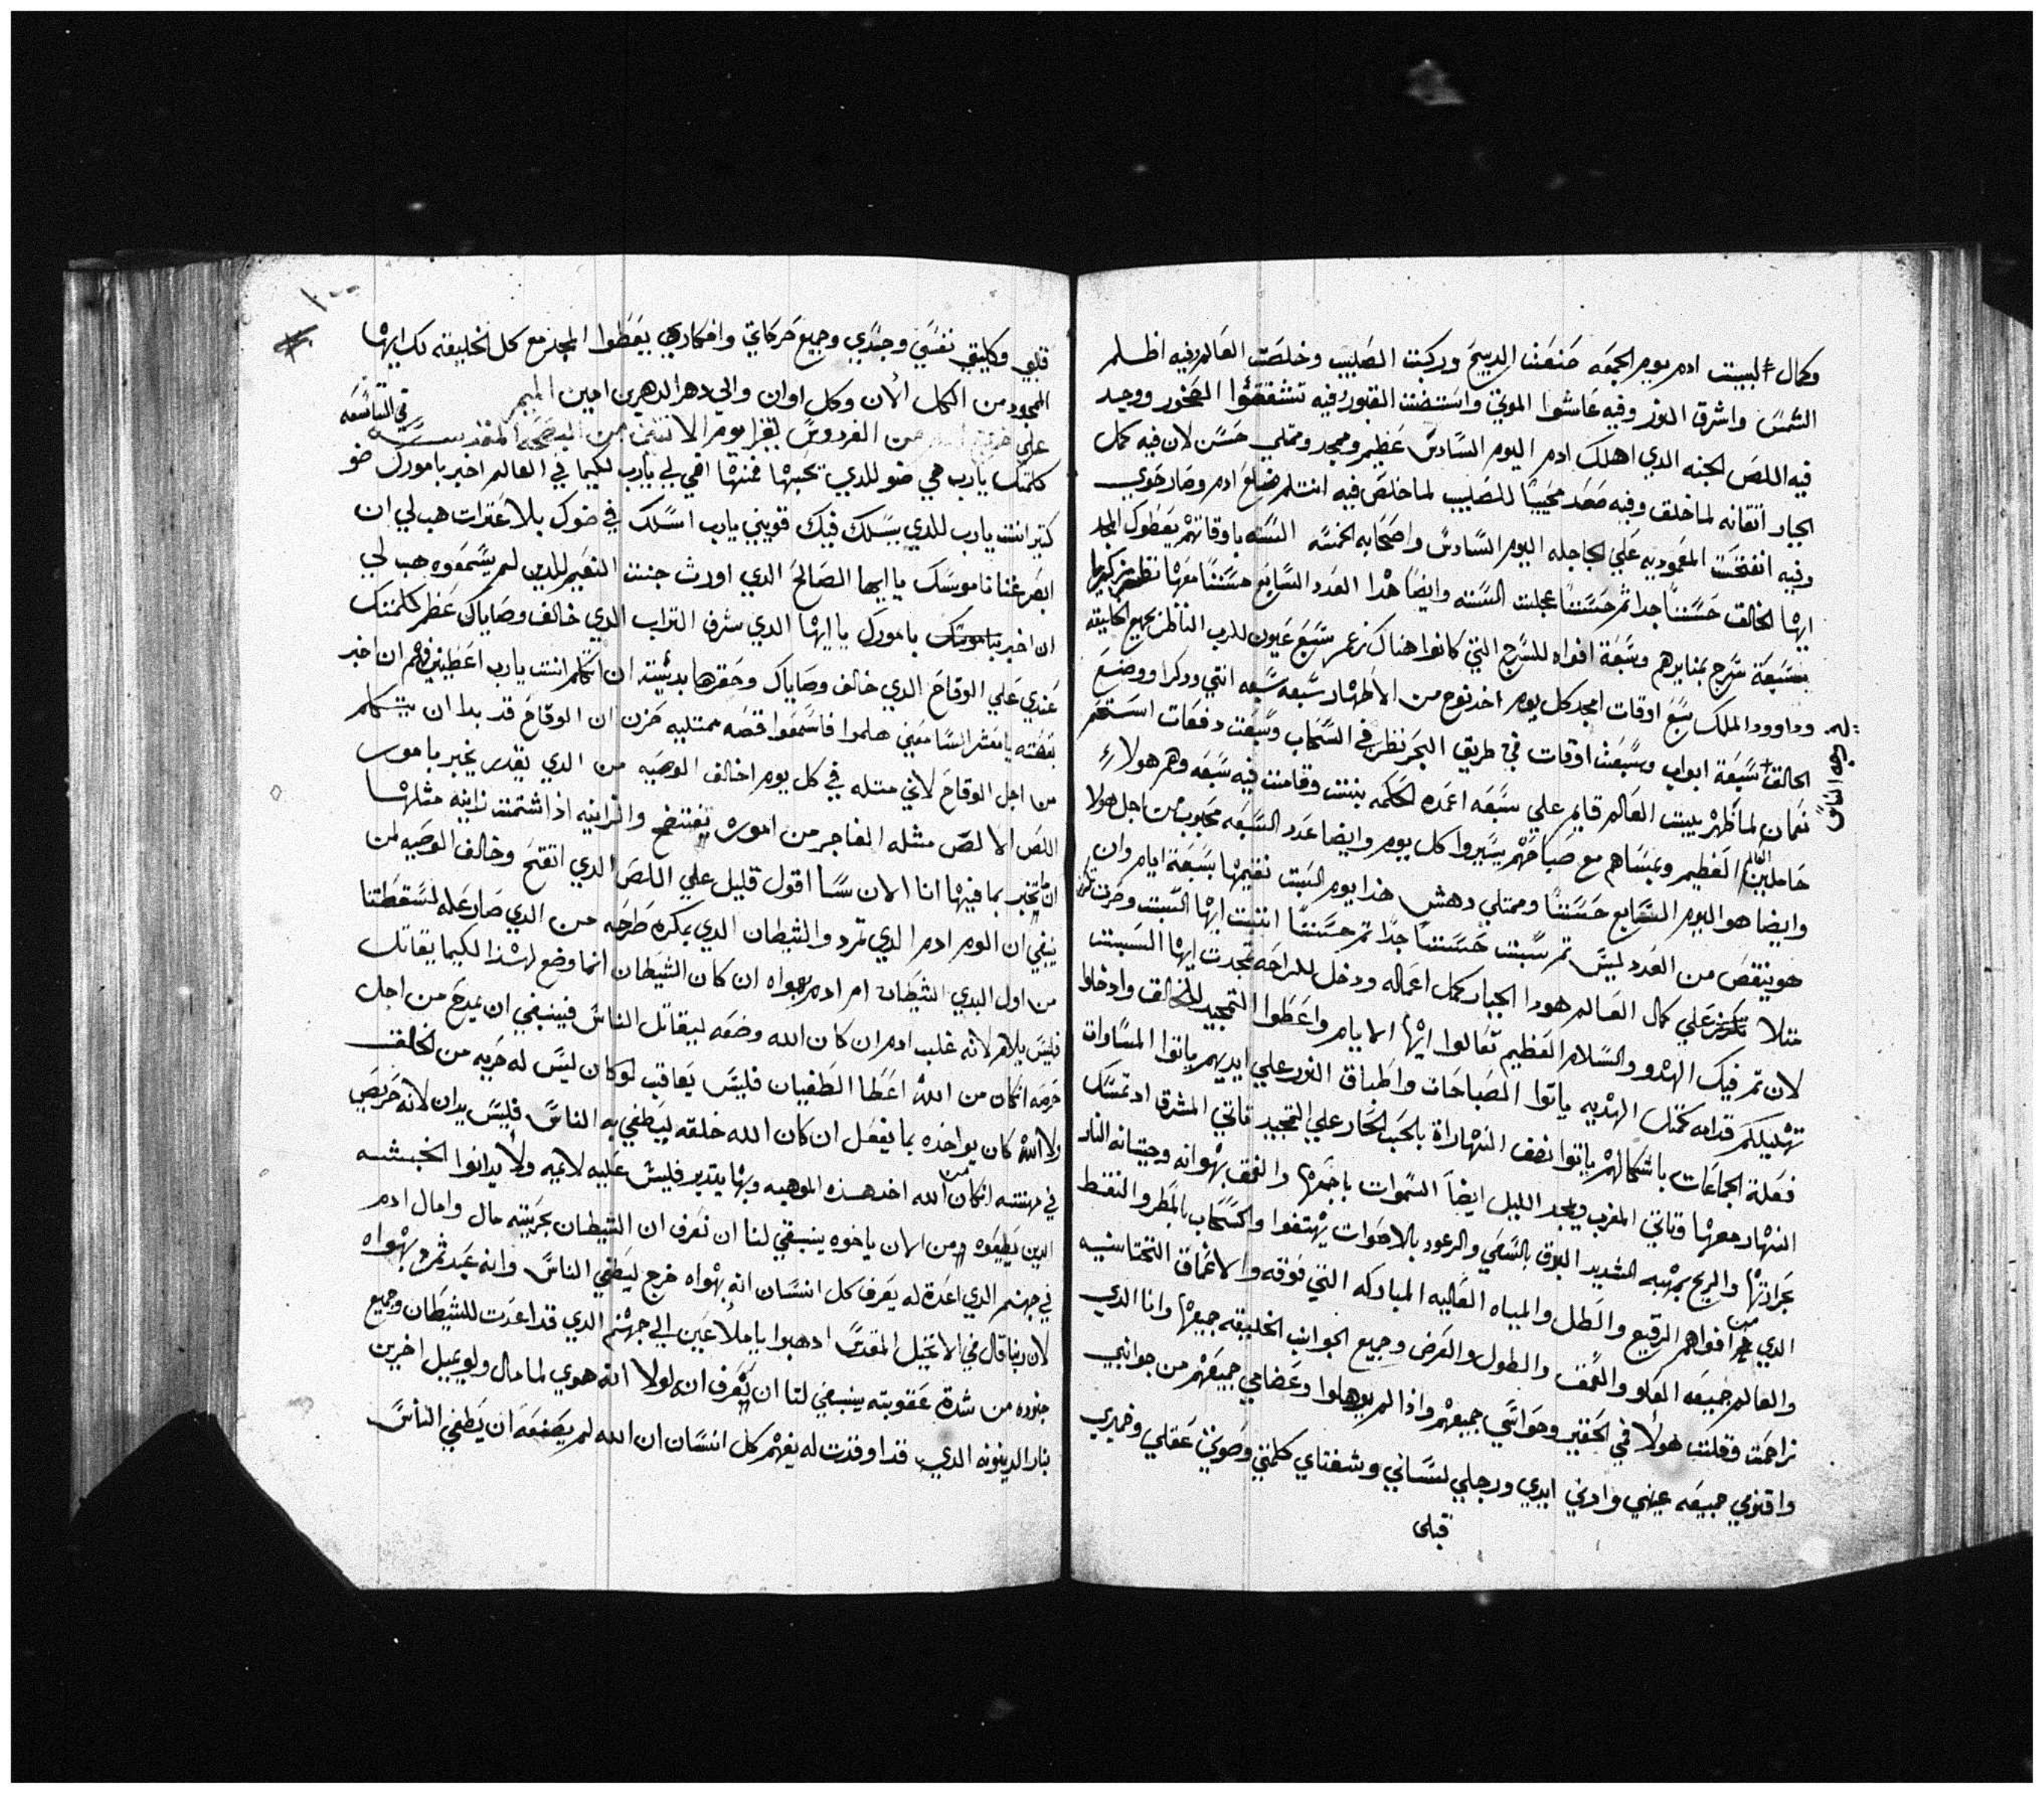 وكمال لبست ادم يوم الجمعه صنعت الدبيح وركبت الصليب وخلصت العالم وفيه اظلم
الشمس واشرق النور وفيه عاشوا الموتي واستضت القبور وفيه تشققوا الصخور ووجد
فيه اللص الجنه الدي اهلك ادم اليوم السادس عظيم وممجد وممتلي حسن لان فيه كمل
الجبار اتقانه لما خلق وفيه صعد محييًا للصليب لما خلص فيه انتلم ضلع ادم وصار حوي
وفيه انفتحت المعموديه علي الجاجله اليوم السادس واصحابه الخمسه السته باوقاتهم يعطوك المجد
ايها الخالق حسننًا جدا ثم حسننًا عجلت السته وايضًا هدا العدد السابع حسننًا معها نظر
بسبعة سرج بمنايرهم وسبعة افواه للسرج التي كانوا هناك سبع عيون للرب الناظر جميع الخليقه
وداوود الملك سبع اوقات امجد كل يوم اخد نوح من الاطهار سبعه سبعه انتي ودكرا ووضع
الخالق سبعة ابواب وسبعت اوقات في طريق البحر نظر في السحاب وسبعت دفعات استحم
نعمان لما ظهر ببيت العالم قايم علي سبعه اعمده الحكمه بنيت وقامت فيه سبعه وهم هولاء
حاملين العالم العظيم وبمساهم مع صباحهم يسيروا كل يوم وايضا عدد السبعه محبوب من اجل هولا
وايضا هو اليوم السابع حسننًا وممتلي دهش هذا يوم السبت نقيمها بسبعة ايام وان
هو ينقص من العدد ليس تم سبت حسننًا جدًا ثم حسننًا انتت ايها السبت وصرت
متلا علي كمال العالم هودا الجبار كمل اعماله ودخل للراحه تمجدت ايها السبت
لان تم فيك الهدو والسلام العظيم تعالوا ايها الايام واعطوا التمجيد للخالق وادخلوا
تهليلكم قدامه كمتل الهديه ياتوا الصباحات واطباق النور علي ايديهم ياتوا المساواة
فعلة الجماعات باشكالهم ياتوا نصف النهاراة بالحب الحار علي التمجيد تاتي المشرق ادتمسك
النهار معها وتاتي المغرب ويمجد الليل ايضاً السموات باجمعها والعمق بهواته وحيتانه النار
بحرارتها والريح بمهبه الشديد البروق بالسعي والرعود بالاصوات يهتفوا والسحاب بالمطر والنقط
الدي من افواهم الرقيع والطل والمياه العاليه المباركه التي فوقه والاعماق التحتانيه
والعالم جميعه العلو والعمق والطول والعرض وجميع الجوانب الخليقه جميعها وانا الدي
تراحمت وقلت هولا في الحقير وحواسي جميعهم واذا لم يوهلوا وعضامي جميعهم من جوانبي
واقنومي جميعه عيني وادني ايدي ورجلي لساني وشفتاي كلمتي وصوتي عقلي وضميري
قبلي
قلبي وكليتي نفسي وجسدي وجميع حركاتي وافكاري يعطوا المجد مع كل الخليقه لك ايها
الممجود من الكل الان وكل اوان والي دهر الداهرين امين الميمر
في التاسعه
علي من الفردوس يقرا يوم الاتنين من البصخه المقدسه
كلمتك يارب هي ضو للدي يحبها فمنها افي لي يارب لكيما في العالم اخبر بامورك ضو
كتير انتت يارب للدي يسلك فيك قويني يارب اسلك في ضوك بلا عترات هب لي ان
ابصر غنا ناموسك يا ايها الصالح الدي اورث جنت النعيم للدين لم يسمعوه هب لي
ان اخبر بامورك يا ايها الدي شرف التراب الدي خالف وصاياك عظم كلمتك
عندي علي الوقاح الدي خالف وصاياك وحقرها بدئيته ان اتكلم انتت يارب اعطيني فهم ان اخبر
بقصته يا معشر السامعين هلموا فاسمعوا قصه ممتليه حزن ان الوقاح قد بدا ان يتكلم
من اجل الوقاح لاني متله في كل يوم اخالف الوصيه من الدي يقدر يخبر بامور
اللص الا لص مثله الفاجر من اموره يفتضح والزانيه اذا اشتمت زانيه مثلها
تخبر بما فيها انا الان سًا اقول قليل علي اللص الدي اتقتح وخالف الوصيه لمن
ينبغي ان الوم ادم الدي تمرد والشيطان الدي بمكره طرحه من الدي صار عله لسقطتنا
من اول البدي الشيطان ام ادم بهواه ان كان الشيطان انما وضع لهذا لكيما يقاتل
فليس يلام لانه غلب ادم ان كان الله وضعه ليقاتل الناس فينبغي ان يمدح من اجل
حرصه انكان من الله اعطا الطغيان فليس يعاقب لوكان ليس له حريه من الخالق
ولا الله كان يواخده بما يفعل ان كان الله خلقه ليطغي به الناس فليس يدان لانه حريص
في مهنته انكان من الله اخد هذه الموهبه وبها يتدبر فليس عليه لايمه ولا يدانوا الخبثه
الدين يطيعوه ومن الان ياخوه ينبغي لنا ان نعرف ان الشيطان بحريته مال وامال ادم
في جهنم الدي اعدة له يعرف كل انسان انه بهواه خرج ليطغي الناس وانه عبد بهواه
لان ربنا قال في الانجيل المقدس ادهبوا ياملاعين الي جهنم الدي قد اعدت للشيطان وجميع
جنوده من شدة عقوبته ينبغي لنا ان نعرف انه لولا انه هوي لما مال ولو يميل اخرين
بنار الدينونه الدي قد اوقدت له يفهم كل انسان ان الله لم يصنعه ان يطغي الناس